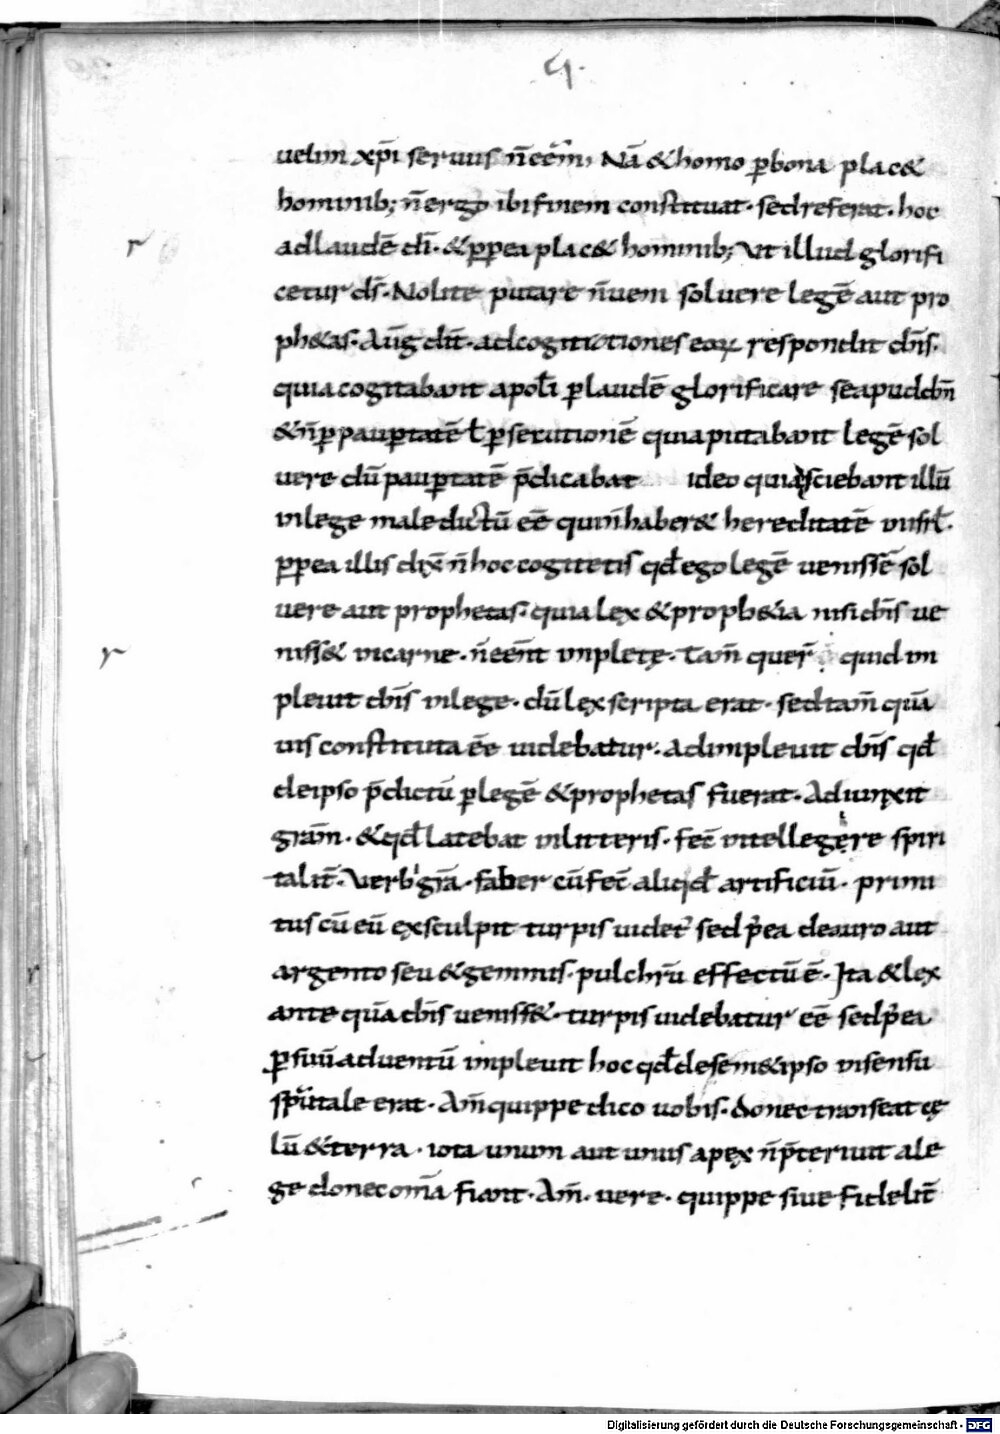 uelim xp̄i seruus n̄ eēm, Nā & homo ꝑ bona plac&
hominib; n̄ ergo ibi finem constituat· sed referat· hoc
ad laudē dī· & ꝓpea plac& hominib; Vt illud glorifi
cetur ds̄· Nolite putare n̄ uem soluere legē aut pro
ph&as· Aūg dīt· ad cogitationes eoꝝ respondit dn̄s·
quia cogitabant apolī ꝑ laudē glorificare se apud dn̄
& n̄ ꝑ pauꝑtatē ł ꝑsecutionē quia putabant legē sol
uere dū pauꝑtatē p̄dicabat ideo quia sciebant illū
in lege maledictū eē qui n̄ haber& hereditatē in isrł·
ꝓpea illis dix̄ n̄ hoc cogitetis qđ ego legē uenissē sol
uere aut prophetas· quia lex & proph&ia nisi dn̄s ue
niss& in carne· n̄ eēnt implete· Tam̄ quer̄ quid im
pleuit dn̄s in lege· dū lex scripta erat· sed tam̄ quā
uis constituta eē uidebatur· adimpleuit dn̄s qđ
de ipso p̄dictū ꝑ legē & prophetas fuerat· Adiunxit
gram̄· & qđ latebat in litteris· fec̄ intellegere spiri
talit̄· Verb' grā· faber cū fec̄ aliqđ artificiū· primi
tus cū eū exsculpit turpis uidet' sed p̄ea de auro aut
argento seu & gemmis· pulchrū effectū ē· Ita & lex
ante quā dn̄s ueniss&· turpis uidebatur eē sed p̄ea
ꝑ suū aduentū impleuit hoc qđ de sem&ipso in sensu
sp̄uitale erat· Am̄ quippe dico uobis· donec transeat cę
lū & terra· iota unum aut unus apex n̄ p̄teriuit a le
ge donec om̄a fiant· Am̄· uere· quippe siue fidelit̄
Digitalisierung gefördert durch die Deutsche Forschungsgemeinschaft - DFG